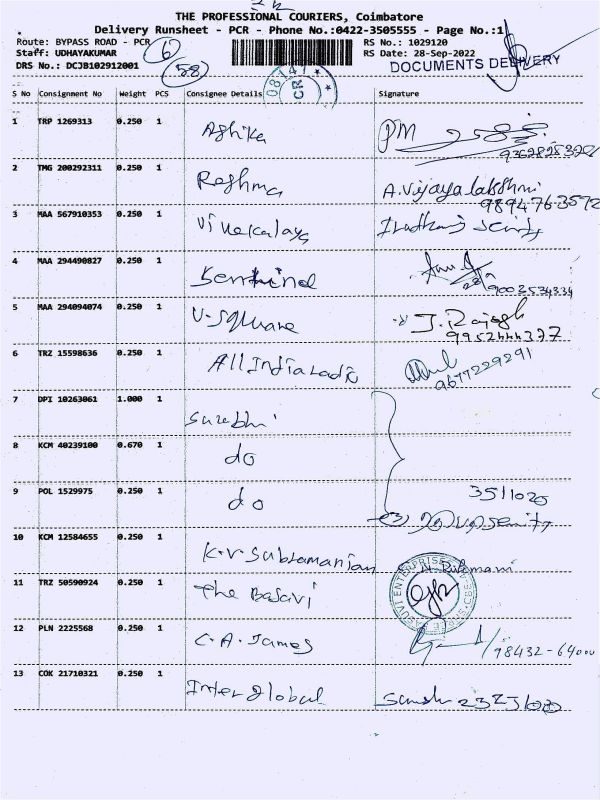 THE PROFESSIONAL COURIERS, Coimbatore
Delivery Runsheet - PCR - Phone No.:0422-3505555 - Page No.:1
Route: BYPASS ROAD - PCR 6 RS No.: 1029120
Staff: UDHAYAKUMAR RS Date: 28-Sep-2022
DRS No.: DCJB102912001 58 DOCUMENTS DELIVERY
S No Consignment No Weight PCS Consignee Details Signature
1 TRP 1269313 0.250 1 Ashika PM
2 TMG 200292311 0.250 1 Reshma A.Vijayalakshmi
9894763572
3 MAA 567910353 0.250 1
4 MAA 294490827 0.250 1 9003534334
5 MAA 294094074 0.250 1 V-Square J. Rajesh
9952444377
6 TRZ 15598636 0.250 1 All India Radio
9677229291
7 DPI 10263061 1.000 1 Surabhi
8 KCM 40239100 0.670 1 do
9 POL 1529975 0.250 1 do 3511020
10 KCM 12584655 0.250 1 K.V Subramanian
11 TRZ 50590924 0.250 1 The Basavi
12 PLN 2225568 0.250 1 C.A. James 98432-64000
13 COK 21710321 0.250 1 Inter global